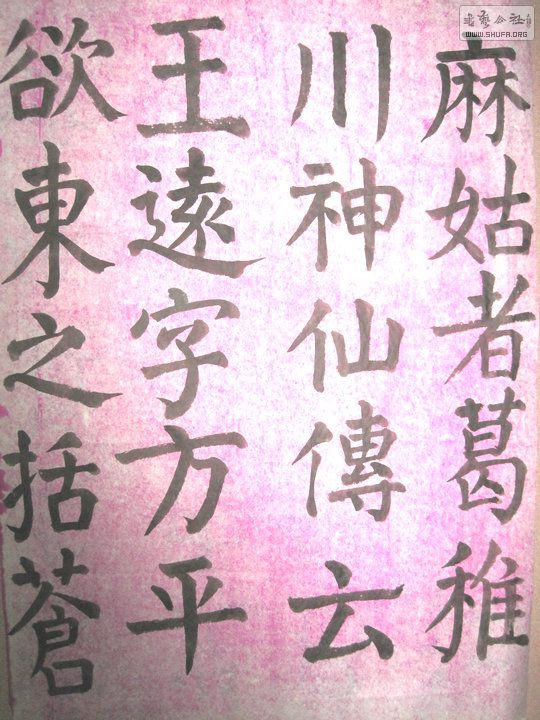 麻姑者葛稚
川神仙傳云
王遠字方平
欲東之括蒼
WWW.SHUFA.ORG